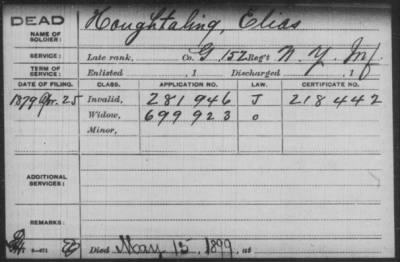 DEAD
NAME OF SOLDIER: Houghtaling, Elias
SERVICE: Late rank, Co. G 152 Reg't N. Y. Inf
TERM OF SERVICE: Enlisted , 1 Discharged , 1
DATE OF FILING. CLASS. APPLICATION NO. LAW. CERTIFICATE NO.
1879 Apr. 25 Invalid, 281946 J 218442
Widow, 699923 o
Minor,
ADDITIONAL SERVICES:
REMARKS:
Died May 15, 1899, at